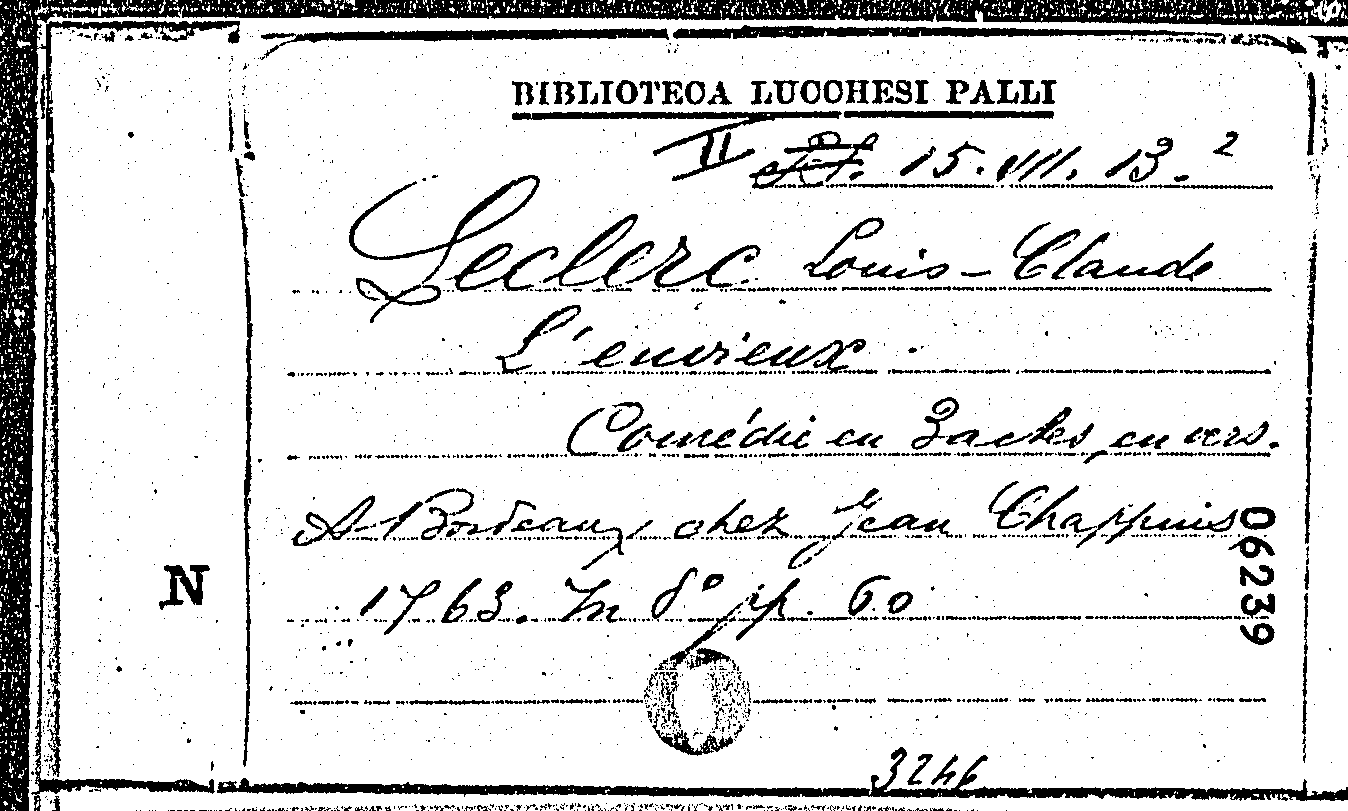 BIBLIOTECA LUCCHESI PALLI
II 15. VII. 13. 2
Leclerc Louis-Claude
L'envieux.
Comédie en 3 actes, en vers.
A Bordeaux, chez Jean Chappuis
1763. In 8° pp. 60
06239
N
3246